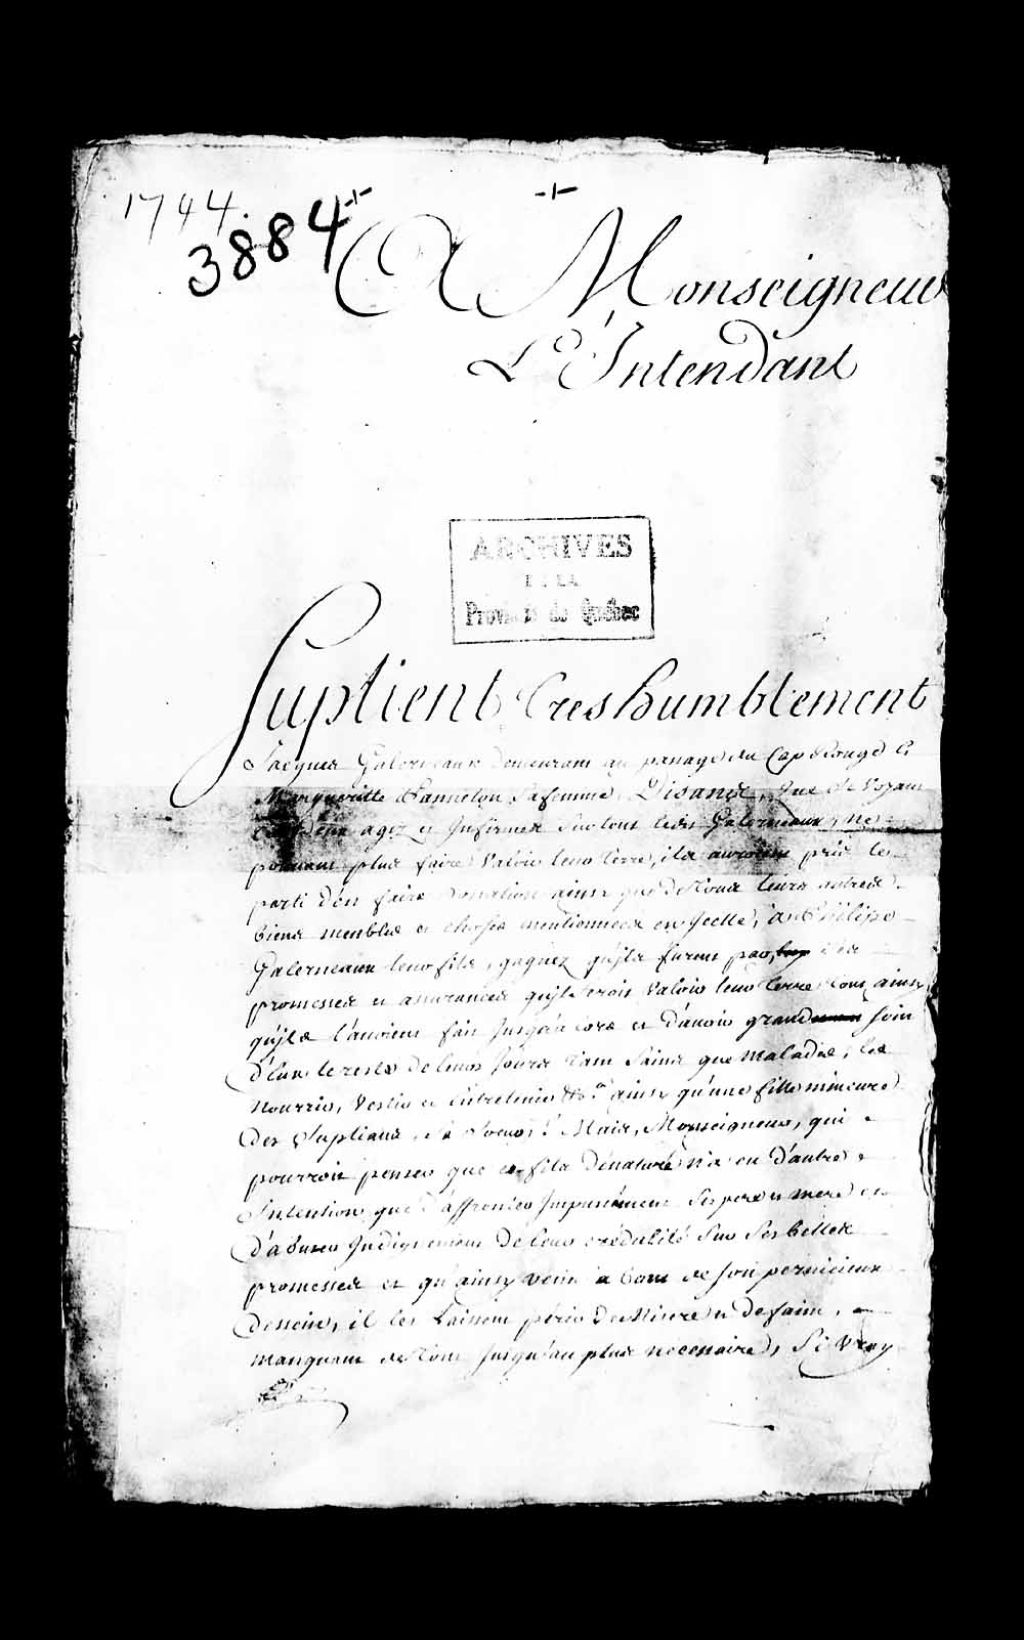 1744.
3884
A Monseigneur
L'Intendant
ARCHIVES
DE LA
Province de Québec
Suplient tres humblement
Jacques Galerneaux demeurant au passage du Cap Rouge et
Margueritte Panneton sa femme, Disant, Que se Voyant
tous deux agez et Infirmes surtout ledit Galerneaux, ne
pouvant plus faire Valoir leur terre, ils auroient pris le
parti d'en faire donation ainsy que de tous leurs autres
biens meubles et choses mentionnées en Icelle, à Philippe
Galerneaux leur fils, gagnez qu'ils furent par les
promesses et assurances qu'il feroit Valoir leur terre tout ainsy
qu'ils l'avoient fait jusqu'alors et d'avoir grand soin
d'eux le reste de leurs jours tant sains que malades, les
nourrir, Vestir et entretenir &ca ainsy qu'une fille mineure
des Suplians, sa soeur. Mais, Monseigneur, qui
pourroit penser que ce fils dénaturé n'a eu d'autre
Intention que d'affronter Impunément ses pere et mere et
d'abuser Indignement de leur crédulité sur ses belles
promesses et qu'ainsy venu à bout de son pernicieux
dessein, il les laissent périr de Misere et de faim,
manquant de tout jusqu'au plus necessaire, Si Vray